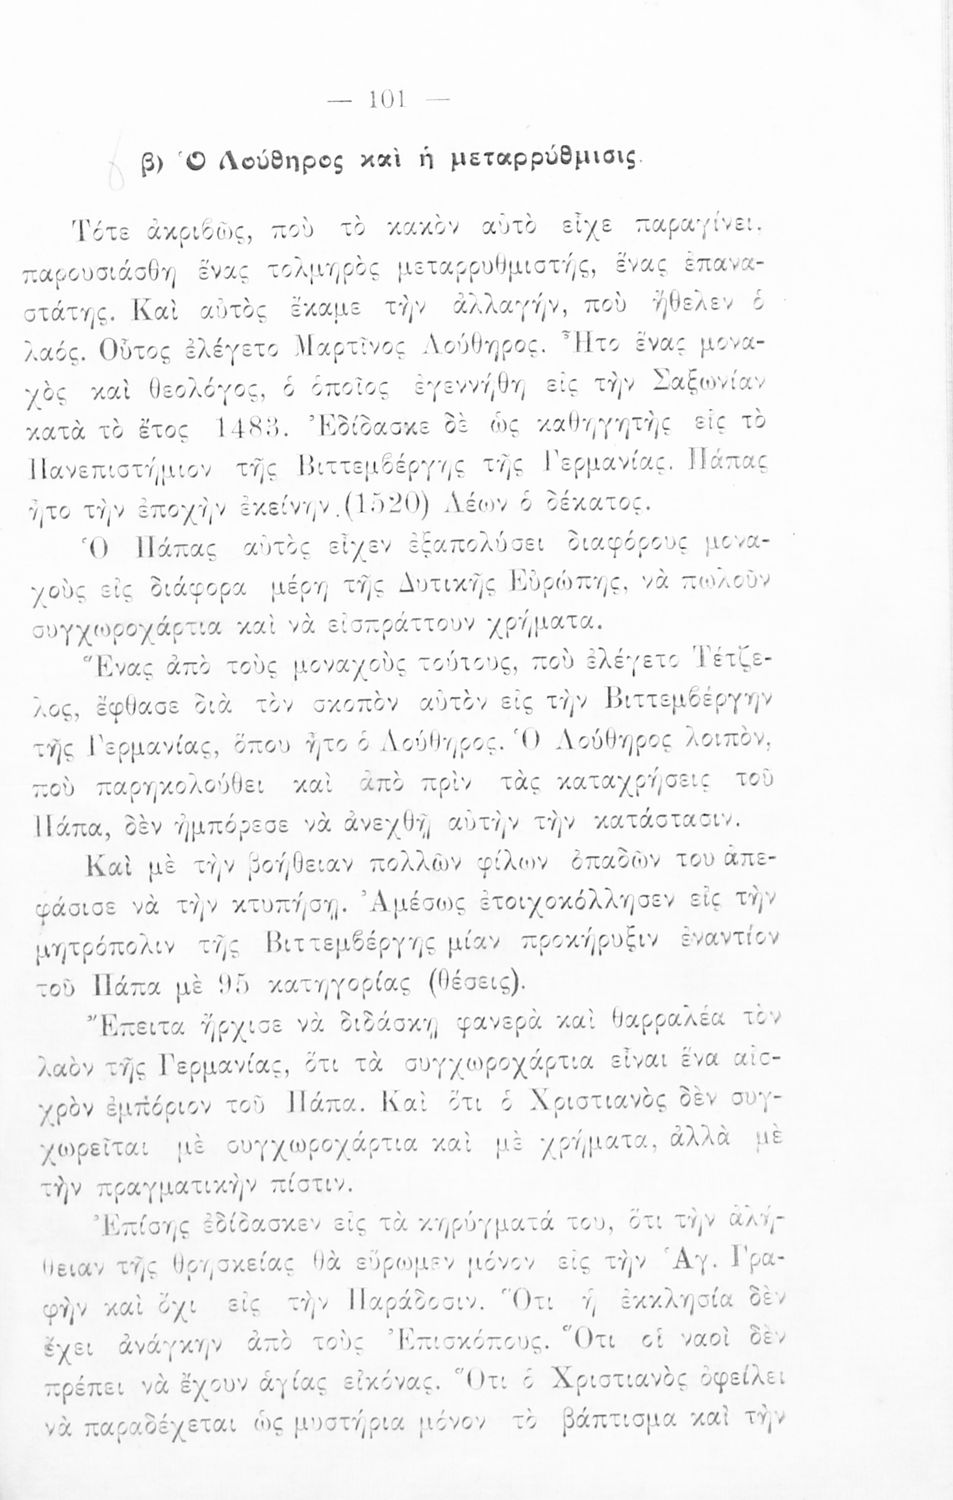 — 101 —
β) Ὁ Λούθηρος καὶ ἡ μεταρρύθμισις.
Τότε ἀκριβῶς, ποὺ τὸ κακὸν αὐτὸ εἶχε παραγίνει,
παρουσιάσθη ἕνας τολμηρὸς μεταρρυθμιστής, ἕνας ἐπανα-
στάτης. Καὶ αὐτὸς ἔκαμε τὴν ἀλλαγήν, ποὺ ἤθελεν ὁ
λαός. Οὗτος ἐλέγετο Μαρτῖνος Λούθηρος. Ἦτο ἕνας μονα-
χὸς καὶ θεολόγος, ὁ ὁποῖος ἐγεννήθη εἰς τὴν Σαξωνίαν
κατὰ τὸ ἔτος 1483. Ἐδίδασκε δὲ ὡς καθηγητὴς εἰς τὸ
Πανεπιστήμιον τῆς Βιττεμβέργης τῆς Γερμανίας. Πάπας
ἦτο τὴν ἐποχὴν ἐκείνην (1520) Λέων ὁ δέκατος.
Ὁ Πάπας αὐτὸς εἶχεν ἐξαπολύσει διαφόρους μονα-
χοὺς εἰς διάφορα μέρη τῆς Δυτικῆς Εὐρώπης, νὰ πωλοῦν
συγχωροχάρτια καὶ νὰ εἰσπράττουν χρήματα.
Ἕνας ἀπὸ τοὺς μοναχοὺς τούτους, ποὺ ἐλέγετο Τέτζε-
λος, ἔφθασε διὰ τὸν σκοπὸν αὐτὸν εἰς τὴν Βιττεμβέργην
τῆς Γερμανίας, ὅπου ἦτο ὁ Λούθηρος. Ὁ Λούθηρος λοιπὸν,
ποὺ παρηκολούθει καὶ ἀπὸ πρὶν τὰς καταχρήσεις τοῦ
Πάπα, δὲν ἠμπόρεσε νὰ ἀνεχθῇ αὐτὴν τὴν κατάστασιν.
Καὶ μὲ τὴν βοήθειαν πολλῶν φίλων ὀπαδῶν του ἀπε-
φάσισε νὰ τὴν κτυπήσῃ. Ἀμέσως ἐτοιχοκόλλησεν εἰς τὴν
μητρόπολιν τῆς Βιττεμβέργης μίαν προκήρυξιν ἐναντίον
τοῦ Πάπα μὲ 95 κατηγορίας (θέσεις).
Ἔπειτα ἤρχισε νὰ διδάσκῃ φανερὰ καὶ θαρραλέα τὸν
λαὸν τῆς Γερμανίας, ὅτι τὰ συγχωροχάρτια εἶναι ἕνα αἰσ-
χρὸν ἐμπόριον τοῦ Πάπα. Καὶ ὅτι ὁ Χριστιανὸς δὲν συγ-
χωρεῖται μὲ συγχωροχάρτια καὶ μὲ χρήματα, ἀλλὰ μὲ
τὴν πραγματικὴν πίστιν.
Ἐπίσης ἐδίδασκεν εἰς τὰ κηρύγματά του, ὅτι τὴν ἀλή-
θειαν τῆς θρησκείας θὰ εὕρωμεν μόνον εἰς τὴν Ἁγ. Γρα-
φὴν καὶ ὄχι εἰς τὴν Παράδοσιν. Ὅτι ἡ ἐκκλησία δὲν
ἔχει ἀνάγκην ἀπὸ τοὺς Ἐπισκόπους. Ὅτι οἱ ναοὶ δὲν
πρέπει νὰ ἔχουν ἁγίας εἰκόνας. Ὅτι ὁ Χριστιανὸς ὀφείλει
νὰ παραδέχεται ὡς μυστήρια μόνον τὸ βάπτισμα καὶ τὴν